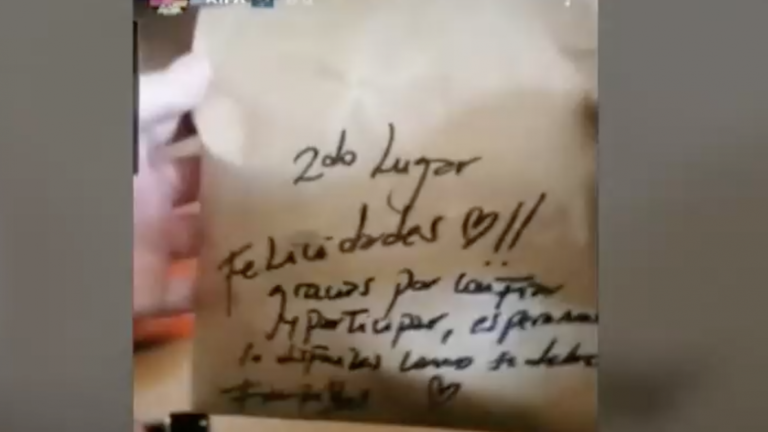 2do Lugar
Felicidades ♡!!
gracias por confiar
y participar, esperamos
lo disfrutes como se debe
♡